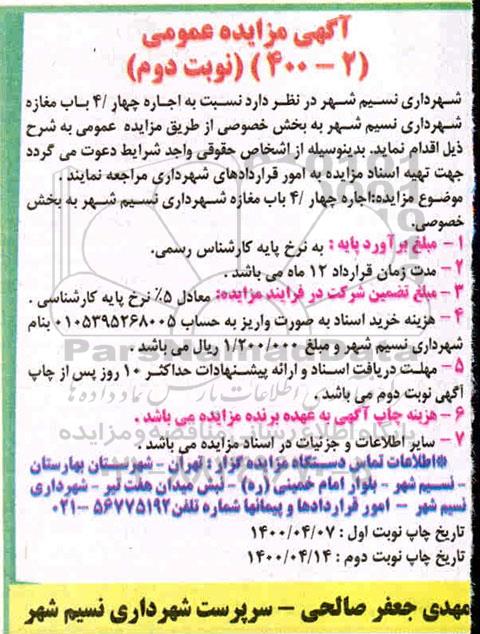 آگهی مزایده عمومی
(۲ – ۴۰۰) (نوبت دوم)
شهرداری نسیم شهر در نظر دارد نسبت به اجاره چهار /۴ باب مغازه
شهرداری نسیم شهر به بخش خصوصی از طریق مزایده عمومی به شرح
ذیل اقدام نماید. بدینوسیله از اشخاص حقوقی واجد شرایط دعوت می گردد
جهت تهیه اسناد مزایده به امور قراردادهای شهرداری مراجعه نمایند .
موضوع مزایده:اجاره چهار /۴ باب مغازه شهرداری نسیم شهر به بخش
خصوصی.
۱ – مبلغ برآورد پایه : به نرخ پایه کارشناس رسمی.
۲ – مدت زمان قرارداد ۱۲ ماه می باشد .
۳ – مبلغ تضمین شرکت در فرایند مزایده: معادل ۵٪ نرخ پایه کارشناسی .
۴ – هزینه خرید اسناد به صورت واریز به حساب ۰۱۰۵۳۹۵۲۶۸۰۰۵ بنام
شهرداری نسیم شهر و مبلغ ۱/۲۰۰/۰۰۰ ریال می باشد .
۵ – مهلت دریافت اسناد و ارائه پیشنهادات حداکثر ۱۰ روز پس از چاپ
آگهی نوبت دوم می باشد .
۶ – هزینه چاپ آگهی به عهده برنده مزایده می باشد .
۷ – سایر اطلاعات و جزئیات در اسناد مزایده می باشد .
*اطلاعات تماس دستگاه مزایده گزار: تهران – شهرستان بهارستان
– نسیم شهر – بلوار امام خمینی (ره) – نبش میدان هفت تیر – شهرداری
نسیم شهر – امور قراردادها و پیمانها شماره تلفن ۵۶۷۷۵۱۹۲–۰۲۱
تاریخ چاپ نوبت اول : ۱۴۰۰/۰۴/۰۷
تاریخ چاپ نوبت دوم : ۱۴۰۰/۰۴/۱۴
مهدی جعفر صالحی – سرپرست شهرداری نسیم شهر
ParsNamadData